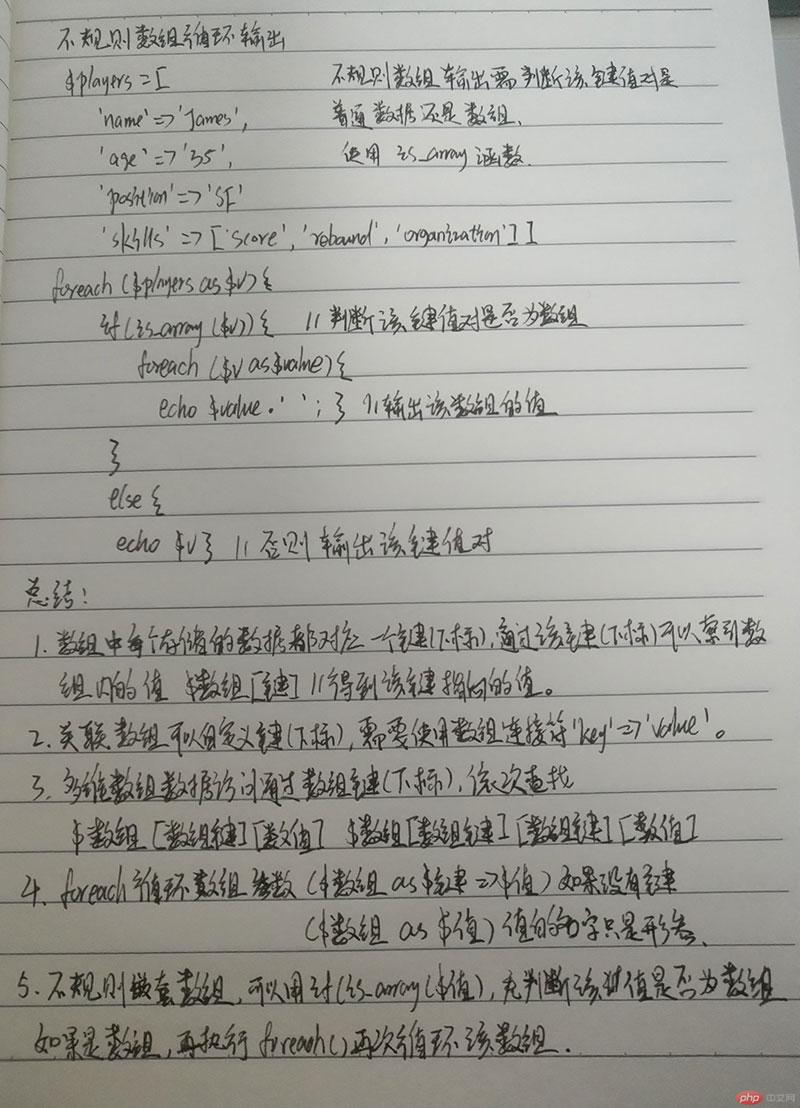 不规则数组循环输出
$players = [ 不规则数组输出需判断该键值对是
'name'=>'James', 普通数据还是数组、
'age'=>'35', 使用 is_array 函数.
'position'=>'SF'
'skills'=>['score','rebound','organization']]
foreach ($players as $v) {
if (is_array ($v)) { // 判断该键值对是否为数组
foreach ($v as $value) {
echo $value.' '; } //输出该数组的值
}
else {
echo $v } // 否则输出该键值对
总结:
1. 数组中每个存储的数据都对应一个键(下标), 通过该键(下标)可以索到数
组内的值 $数组[键] //得到该键指向的值。
2. 关联数组可以自定义键(下标), 需要使用数组连接符'key'=>'value'。
3. 多维数组数据访问通过数组键(下标), 依次查找
$数组[数组键][数值] $数组[数组键][数组键][数值]
4. foreach 循环数组参数 ($数组 as $键=>$值) 如果没有键
($数组 as $值) 值的名字只是形参、
5. 不规则嵌套数组, 可以用 if (is_array($值), 先判断该值是否为数组
如果是数组, 再执行 foreach() 再次循环该数组.
php 中文网